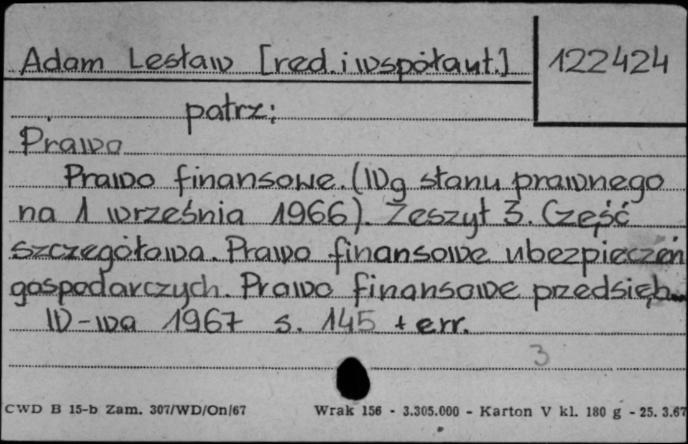 Adam Lesław [red. i współaut.] 122424
patrz:
Prawo
Prawo finansowe. (Wg stanu prawnego
na 1 września 1966). Zeszyt 3. Część
szczegółowa. Prawo finansowe ubezpieczeń
gospodarczych. Prawo finansowe przedsięb...
W-wa 1967 s. 145 + err.
3
CWD B 15-b Zam. 307/WD/On/67 Wrak 156 - 3.305.000 - Karton V kl. 180 g - 25. 3.67